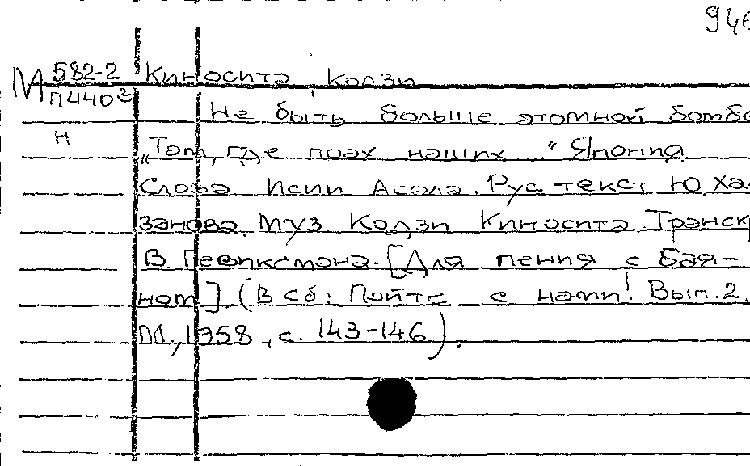 946
М 582-2 Киносита, Кодзи
П4402
Не быть больше атомной бомбе
н
„Там, где прах наших..." Япония
Слова Исии Асада. Рус. текст Ю. Ха-
занова. Муз. Кодзи Киносита. Транскр.
В. [Для пения с бая-
ном]. (В сб.: Пойте с нами! Вып. 2.
М., 1958, с. 143-146).